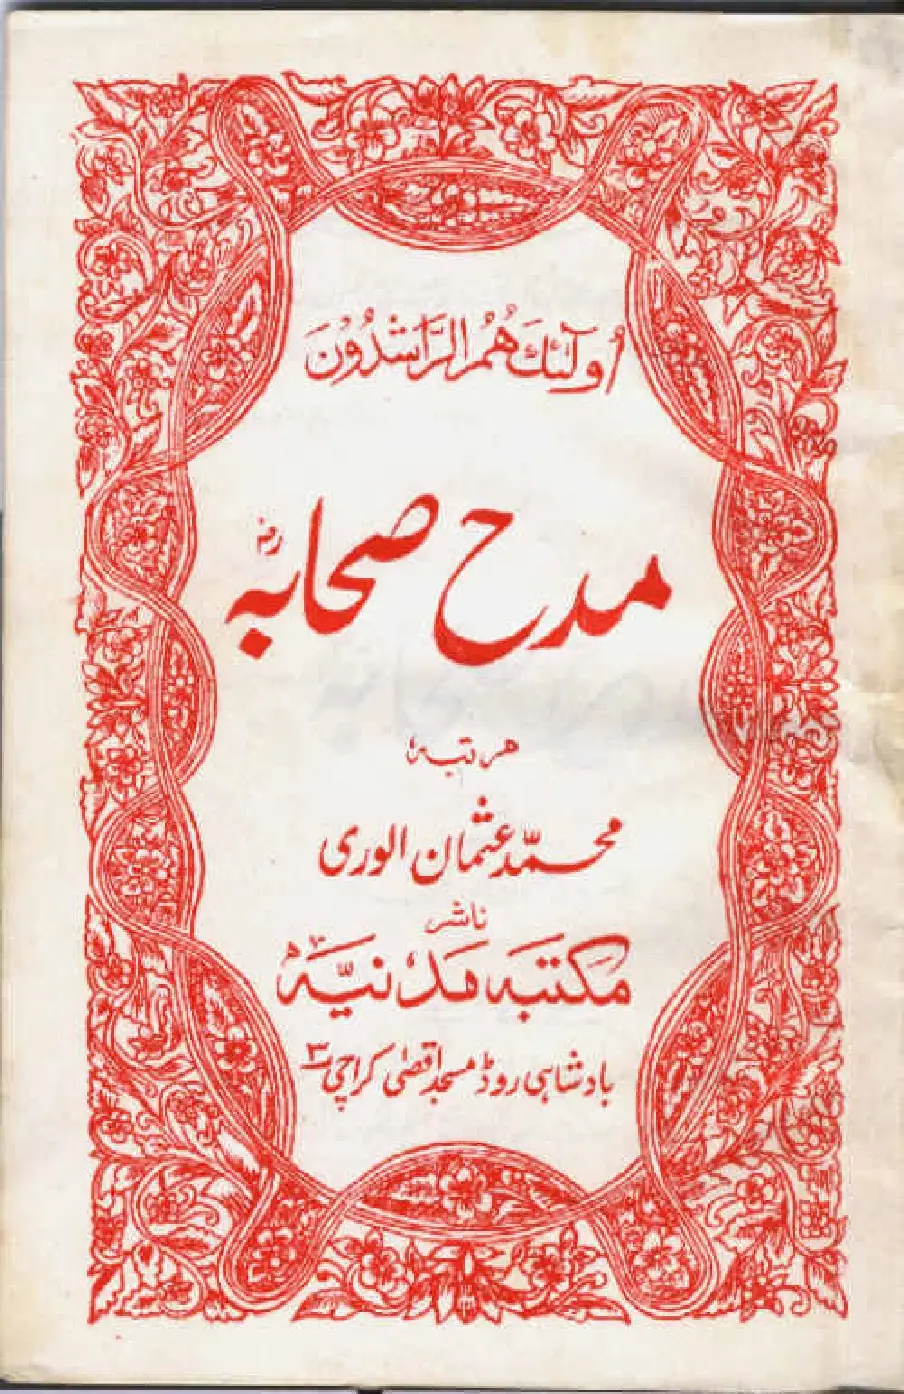 اُولٰٓئِكَ هُمُ الرَّاشِدُوْنَ
مدح صحابہ رض
مرتبہٗ
محمّد عثمان الوری
ناشر
مکتبہ مدنیّہ
بادشاہی روڈ مسجد اقصیٰ کراچی ۳